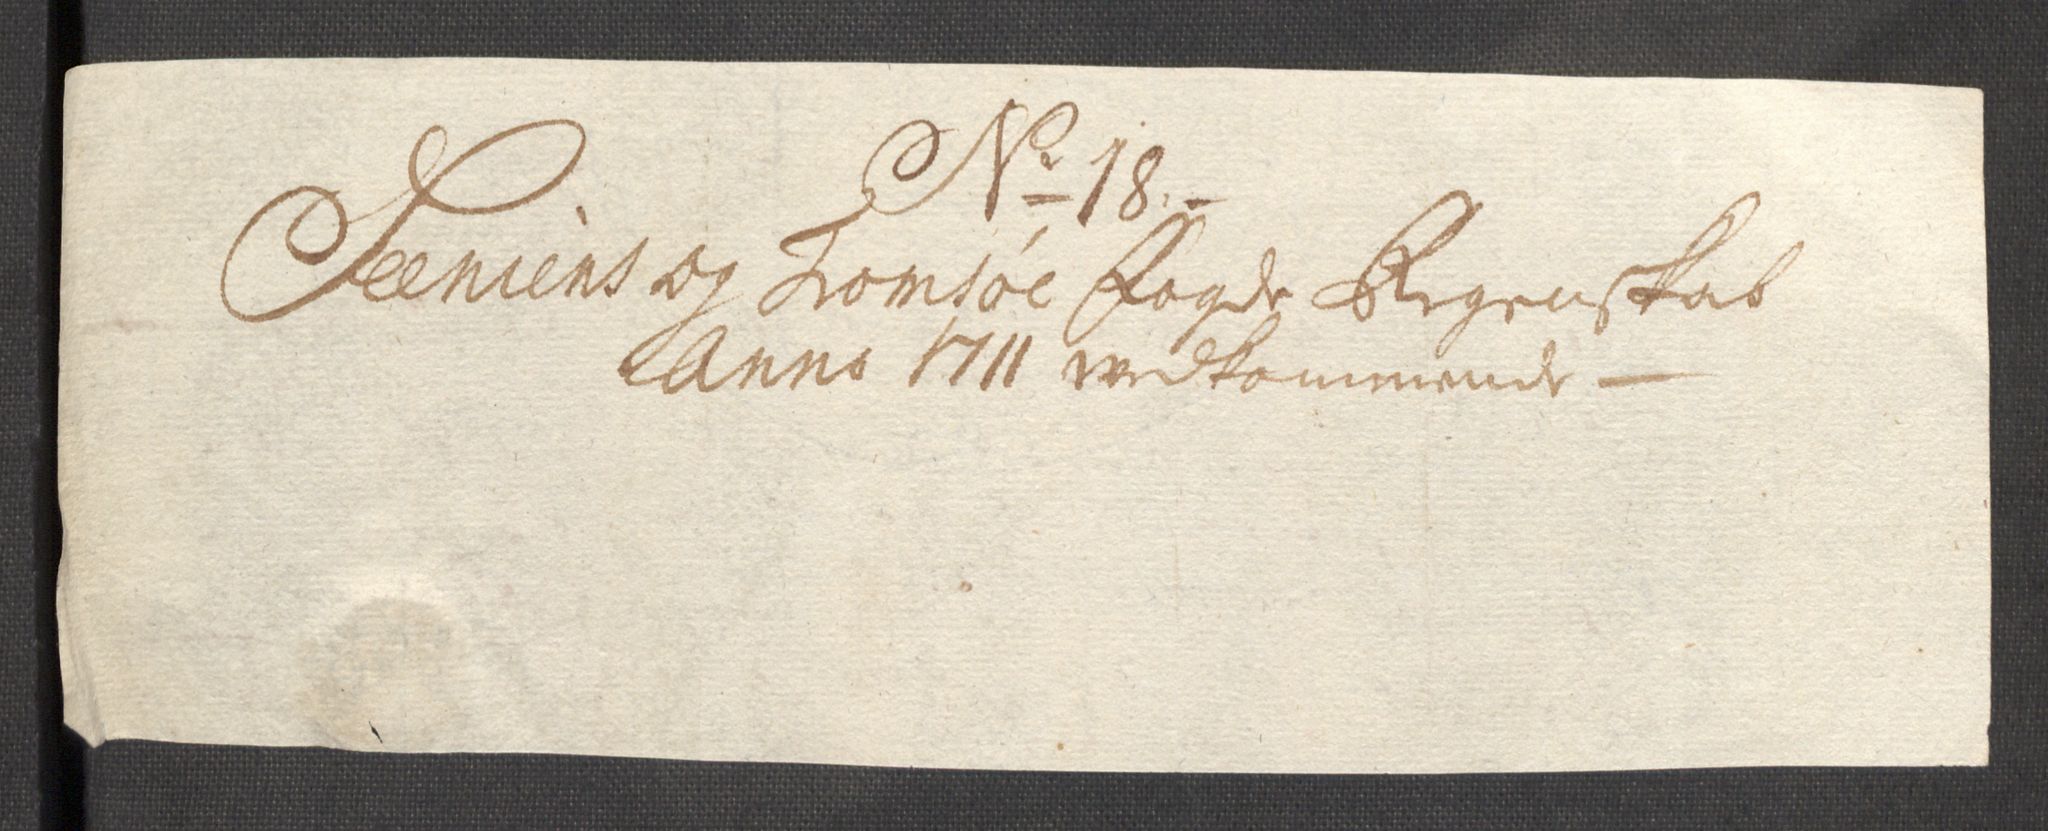 No 18.
Seeniens og Tromsøe Fogde Regenskab
Anno 1711 vedkommende